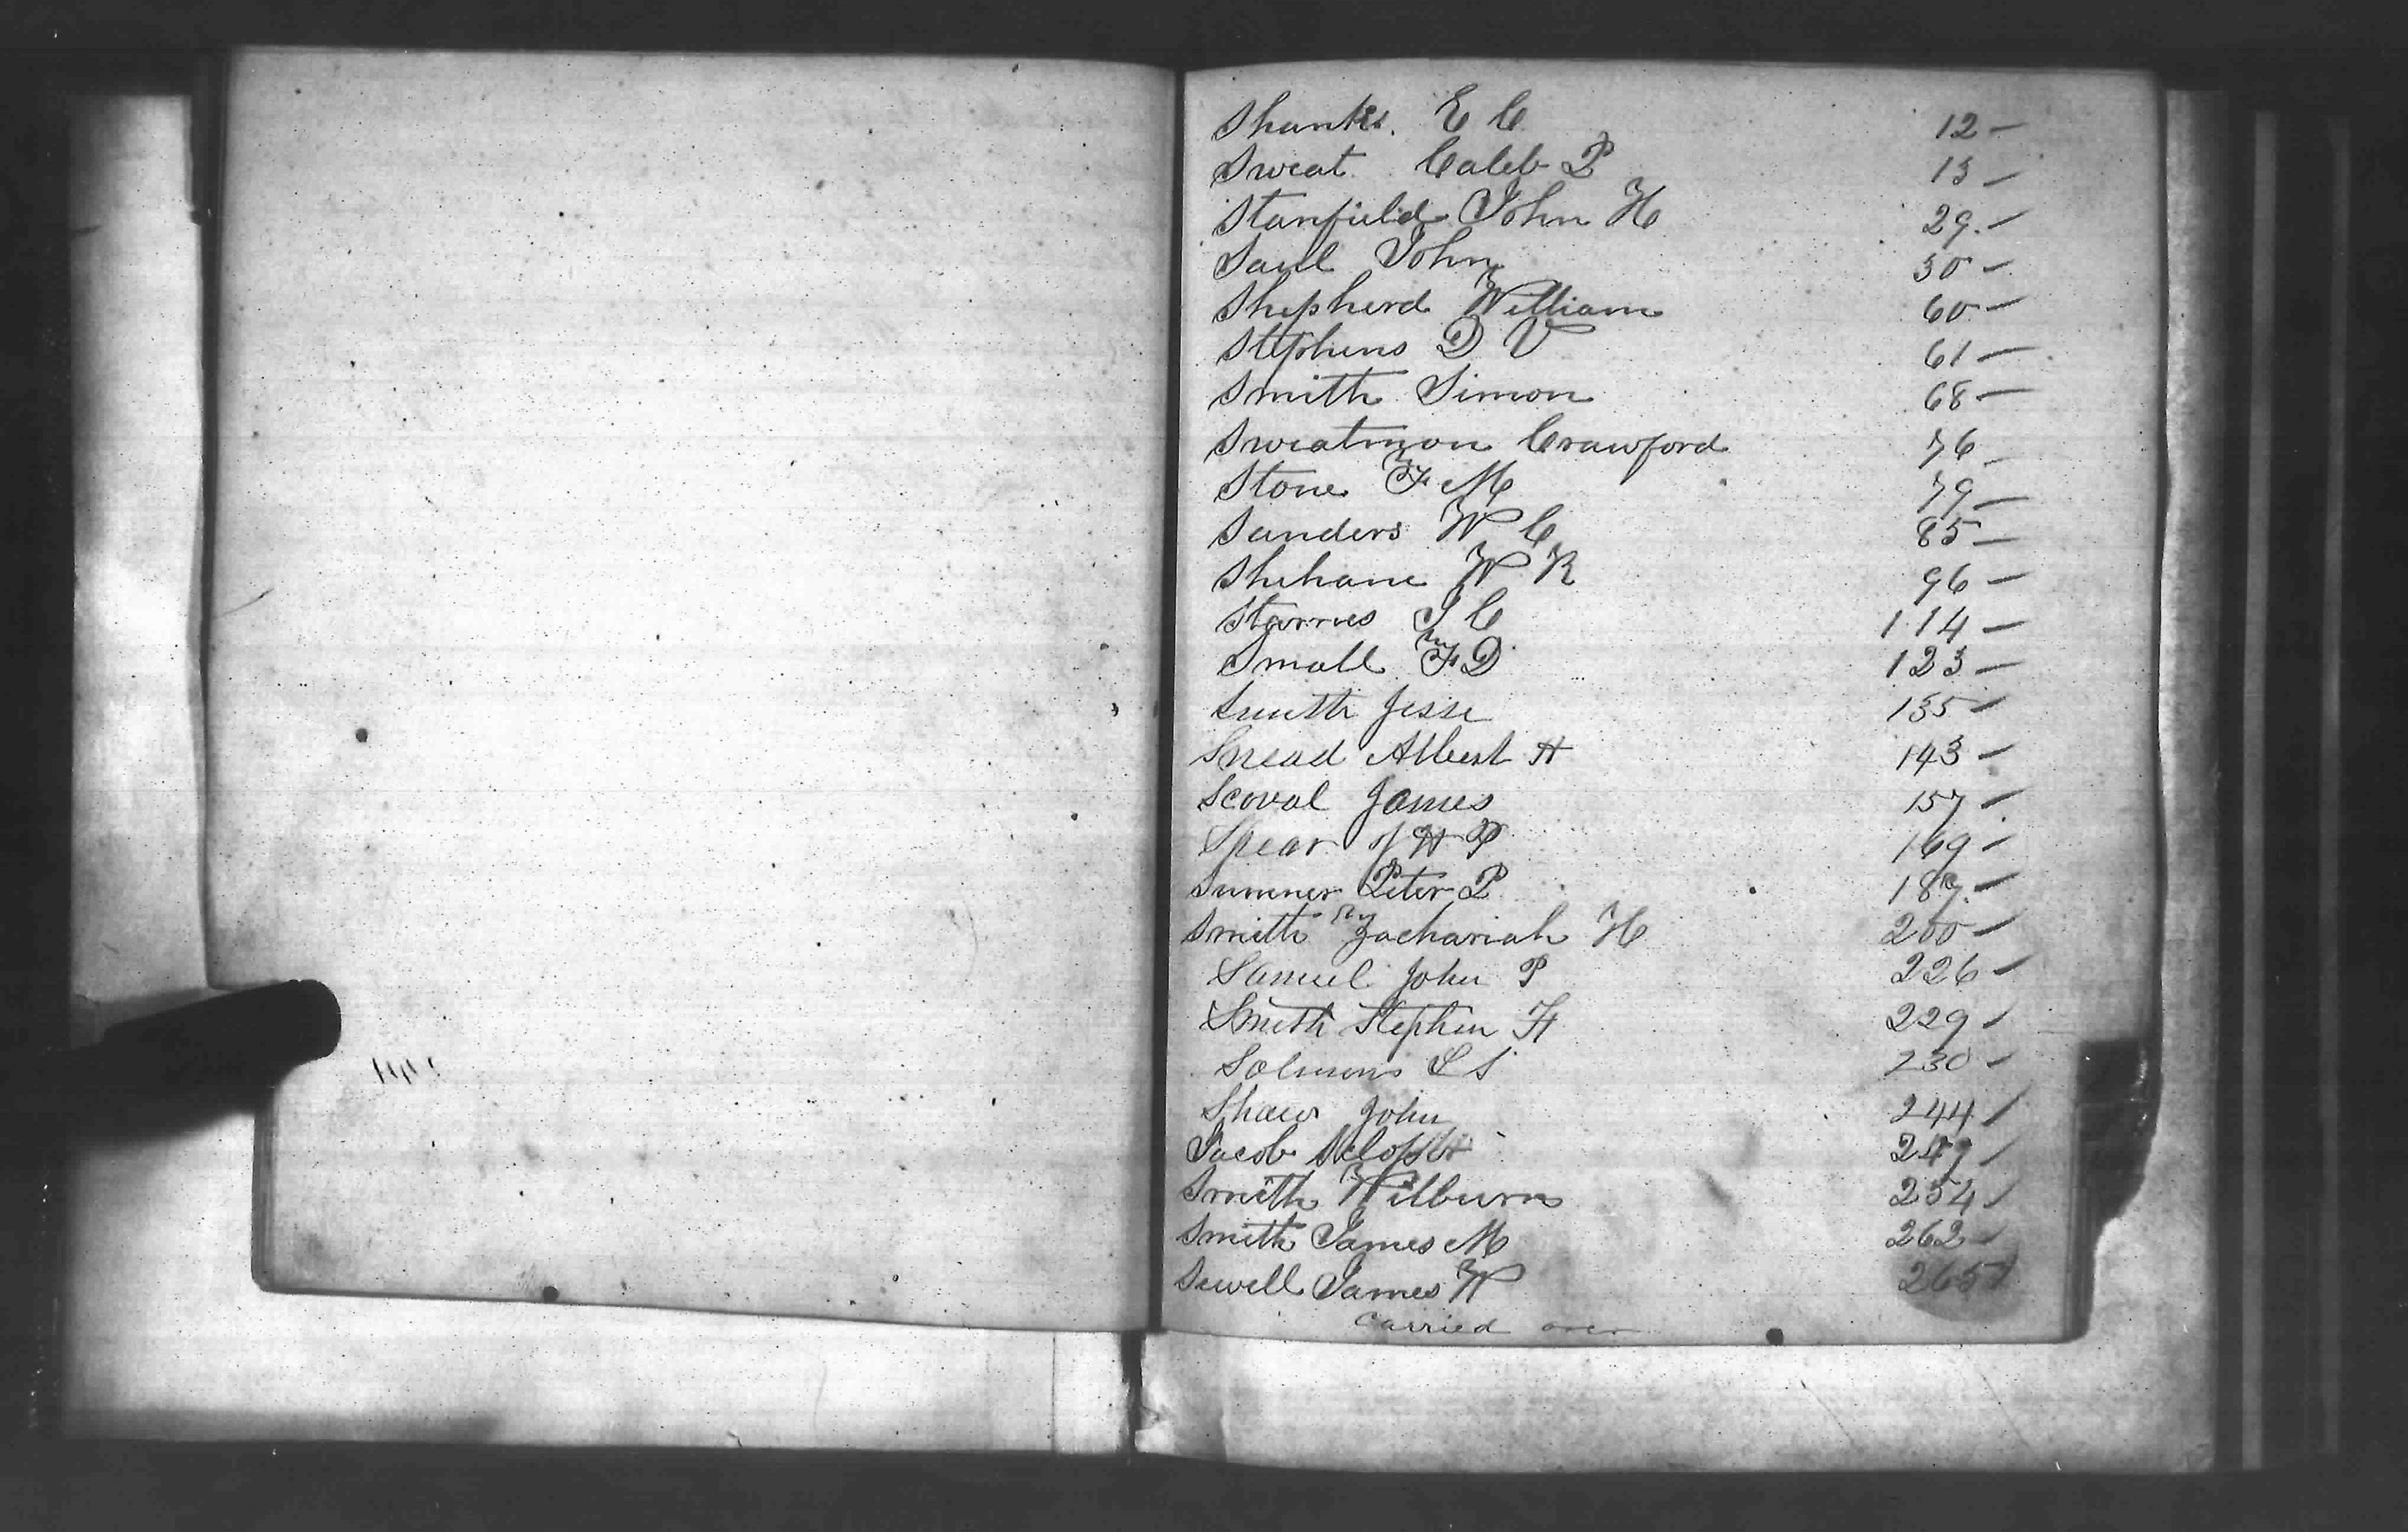 Shanks. E C 12 —
Sweat Caleb P 13 —
Stanfield John H 29. —
Saul John 30 —
Shepherd William 60 —
Stephens D V 61 —
Smith Simon 68 —
Sweatmon Crawford 76 —
Stone F M 79 —
Sanders W C 85 —
Shehane W R 96 —
Starnes J C 114 —
Small F D 123 —
Smith Jesse 135 —
Snead Albert H 143 —
Scoval James 157 —
Spear H P 169 —
Sumner Peter P 187. —
Smith Zachariah H 200 —
Samuel John P 226 —
Smith Stephen H 229 —
Solmons L S 230 —
Shaw John 244 /
Jacob 247 /
Smith Wilburn 254 /
Smith James M 262 —
Sewell James W 265 /
carried over